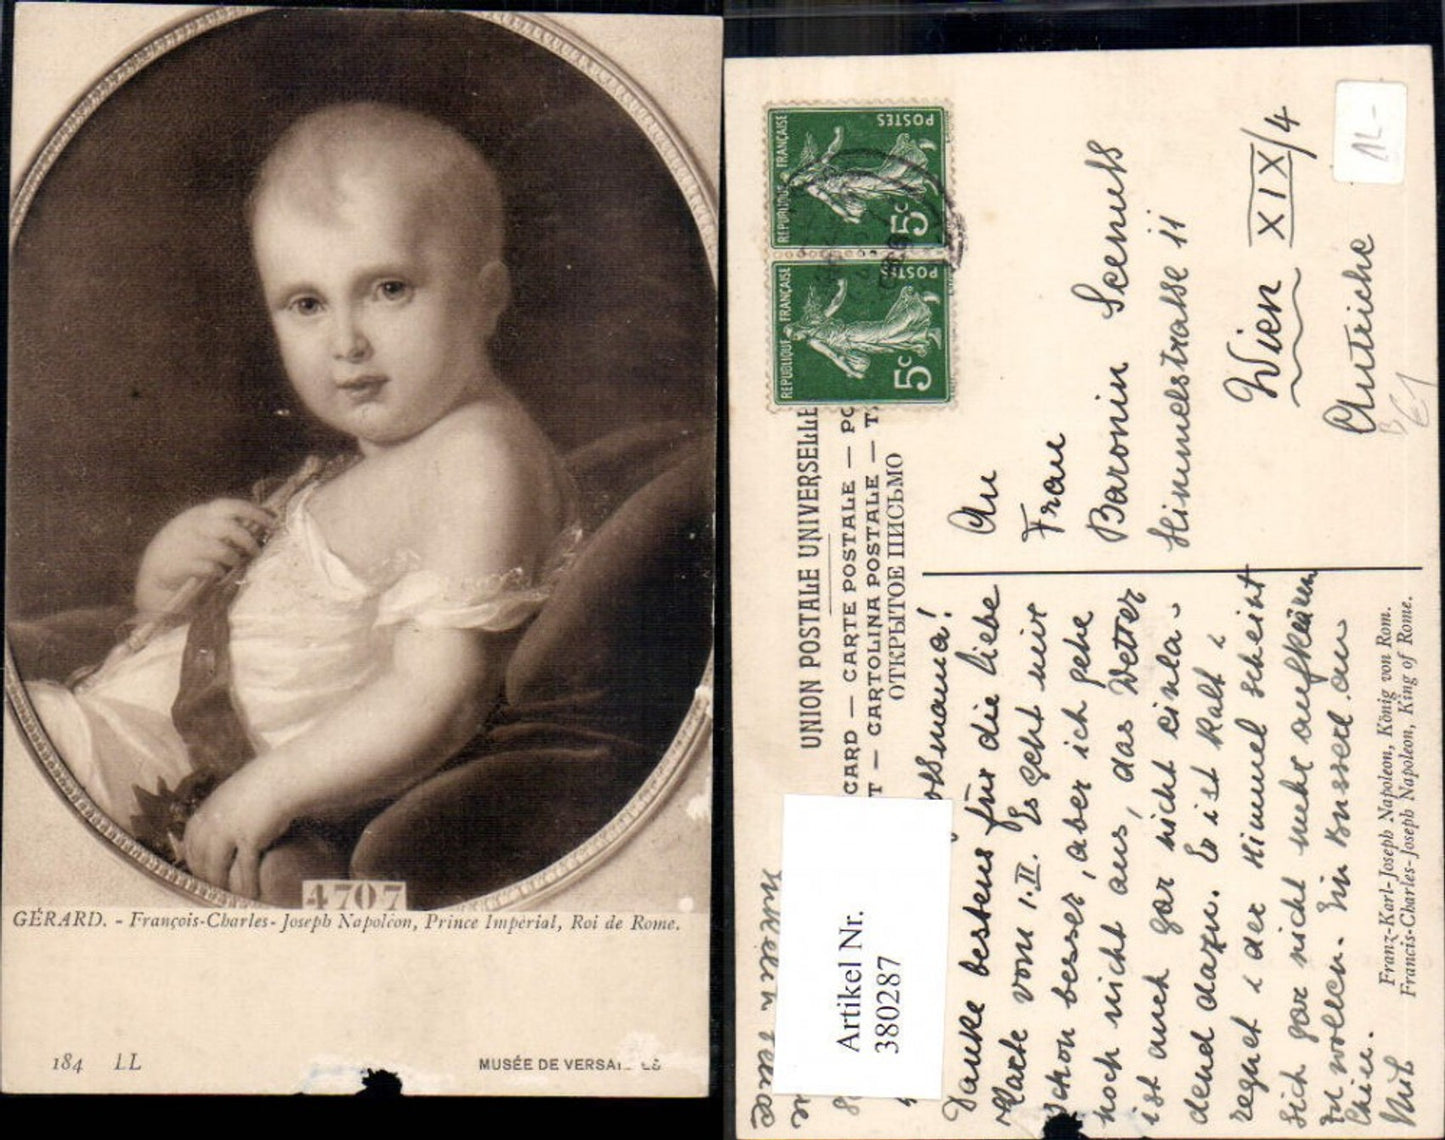 4707
GÉRARD. - François-Charles-Joseph Napoléon, Prince Impérial, Roi de Rome.
184 LL
MUSÉE DE VERSAI ES
REPUBLIQUE FRANÇAISE
POSTES
5c
REPUBLIQUE FRANÇAISE
POSTES
5c
UNION POSTALE UNIVERSELLE
CARD — CARTE POSTALE — PO
T — CARTOLINA POSTALE — T
ОТКРЫТОЕ ПИСЬМО
An
Frau
Baronin
Himmelstrasse 11
Wien XIX/4
Autriche
Danke bestens für die liebe
Karte vom 1.II. Es geht mir
schon besser, aber ich gehe
noch nicht aus, das Wetter
ist auch gar nicht einla-
dend dazu. Es ist kalt,
regnet, der Himmel scheint
sich gar nicht mehr aufklären
zu wollen. Ein Busserl an
Mit
Franz-Karl-Joseph Napoleon, König von Rom.
Francis-Charles-Joseph Napoleon, King of Rome.
Artikel Nr.
380287